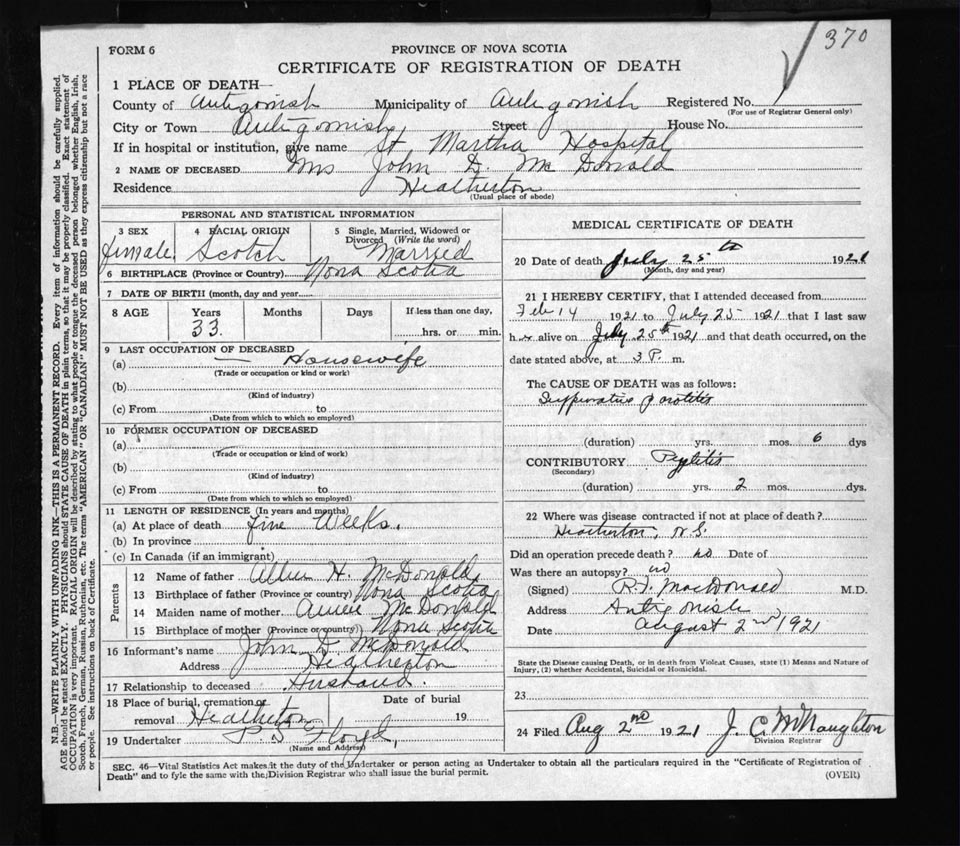 370
FORM 6
PROVINCE OF NOVA SCOTIA
CERTIFICATE OF REGISTRATION OF DEATH
1 PLACE OF DEATH—
County of Antigonish Municipality of Antigonish Registered No.
(For use of Registrar General only)
City or Town Antigonish Street House No.
If in hospital or institution, give name St Martha Hospital
2 NAME OF DECEASED Mrs John D. McDonald
Residence Heatherton
(Usual place of abode)
PERSONAL AND STATISTICAL INFORMATION
3 SEX 4 RACIAL ORIGIN 5 Single, Married, Widowed or
Divorced (Write the word)
female Scotch Married
6 BIRTHPLACE (Province or Country) Nova Scotia
7 DATE OF BIRTH (month, day and year
8 AGE Years Months Days If less than one day,
33 hrs. or min.
9 LAST OCCUPATION OF DECEASED
(a) Housewife
(Trade or occupation or kind of work)
(b)
(Kind of industry)
(c) From to
(Date from which to which so employed)
10 FORMER OCCUPATION OF DECEASED
(a)
(Trade or occupation or kind of work)
(b)
(Kind of industry)
(c) From to
(Date from which to which so employed)
11 LENGTH OF RESIDENCE (In years and months)
(a) At place of death five Weeks.
(b) In province
(c) In Canada (if an immigrant)
Parents
12 Name of father H. McDonald
13 Birthplace of father (Province or country) Nova Scotia
14 Maiden name of mother McDonald
15 Birthplace of mother (Province or country) Nova Scotia
16 Informant's name John D. McDonald
Address Heatherton
17 Relationship to deceased Husband.
18 Place of burial, cremation or Date of burial
removal Heatherton 19
19 Undertaker P.S. Floyd,
(Name and Address)
MEDICAL CERTIFICATE OF DEATH
20 Date of death July 25th 1921
(Month, day and year)
21 I HEREBY CERTIFY, that I attended deceased from
Feb 14 1921 to July 25 1921 that I last saw
her alive on July 25th 1921 and that death occurred, on the
date stated above, at 3 P. m.
The CAUSE OF DEATH was as follows:
Suppurative parotitis
(duration) yrs. mos. 6 dys
CONTRIBUTORY
(Secondary)
(duration) yrs. 2 mos. dys.
22 Where was disease contracted if not at place of death?
Heatherton, N.S.
Did an operation precede death? no Date of
Was there an autopsy? no
(Signed) R.F. MacDonald M.D.
Address Antigonish
Date August 2nd 1921
State the Disease causing Death, or in death from Violent Causes, state (1) Means and Nature of
Injury, (2) whether Accidental, Suicidal or Homicidal.
23
24 Filed Aug 2nd 1921 J. C. McNaughton
Division Registrar
SEC. 46—Vital Statistics Act makes it the duty of the Undertaker or person acting as Undertaker to obtain all the particulars required in the "Certificate of Registration of
Death" and to fyle the same with the Division Registrar who shall issue the burial permit.
(OVER)
N.B.—WRITE PLAINLY WITH UNFADING INK—THIS IS A PERMANENT RECORD. Every item of information should be carefully supplied.
AGE should be stated EXACTLY. PHYSICIANS should STATE CAUSE OF DEATH in plain terms, so that it may be properly classified. Exact statement of
OCCUPATION is very important. RACIAL ORIGIN will be described by stating to what people or tongue the deceased person belonged whether English, Irish,
Scotch, French, German, Russian, Ruthenian, etc. The terms "AMERICAN" OR "CANADIAN" MUST NOT BE USED as they express citizenship but not a race
or people. See instructions on back of Certificate.